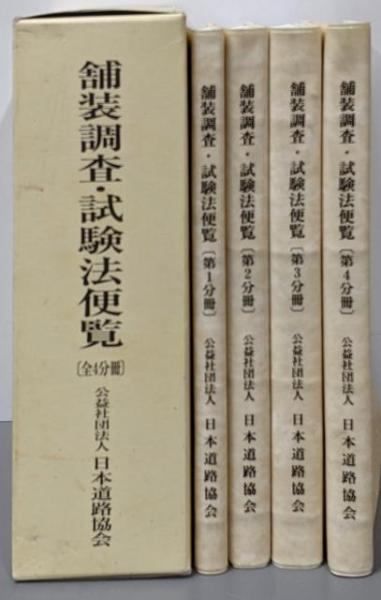 舗装調査・試験法便覧
〔全4分冊〕
公益社団法人 日本道路協会
舗装調査・試験法便覧〔第1分冊〕 公益社団法人 日本道路協会
舗装調査・試験法便覧〔第2分冊〕 公益社団法人 日本道路協会
舗装調査・試験法便覧〔第3分冊〕 公益社団法人 日本道路協会
舗装調査・試験法便覧〔第4分冊〕 公益社団法人 日本道路協会